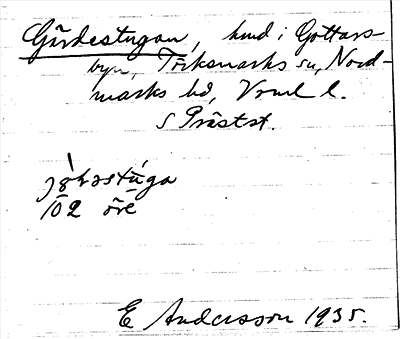 Gärdestugan, hmd i Gottars-
byn, Töcksmarks sn, Nord-
marks hd, Vrml l.
S Prästst.
102 öre
E Andersson 1935.